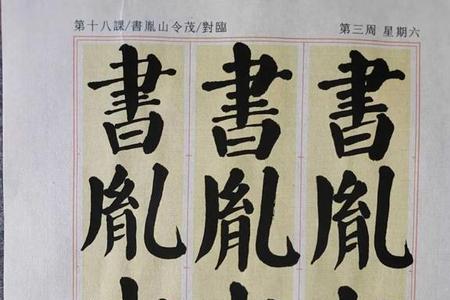 第十八課/書胤山令茂/對臨
第三周 星期六
書胤
書胤
書胤